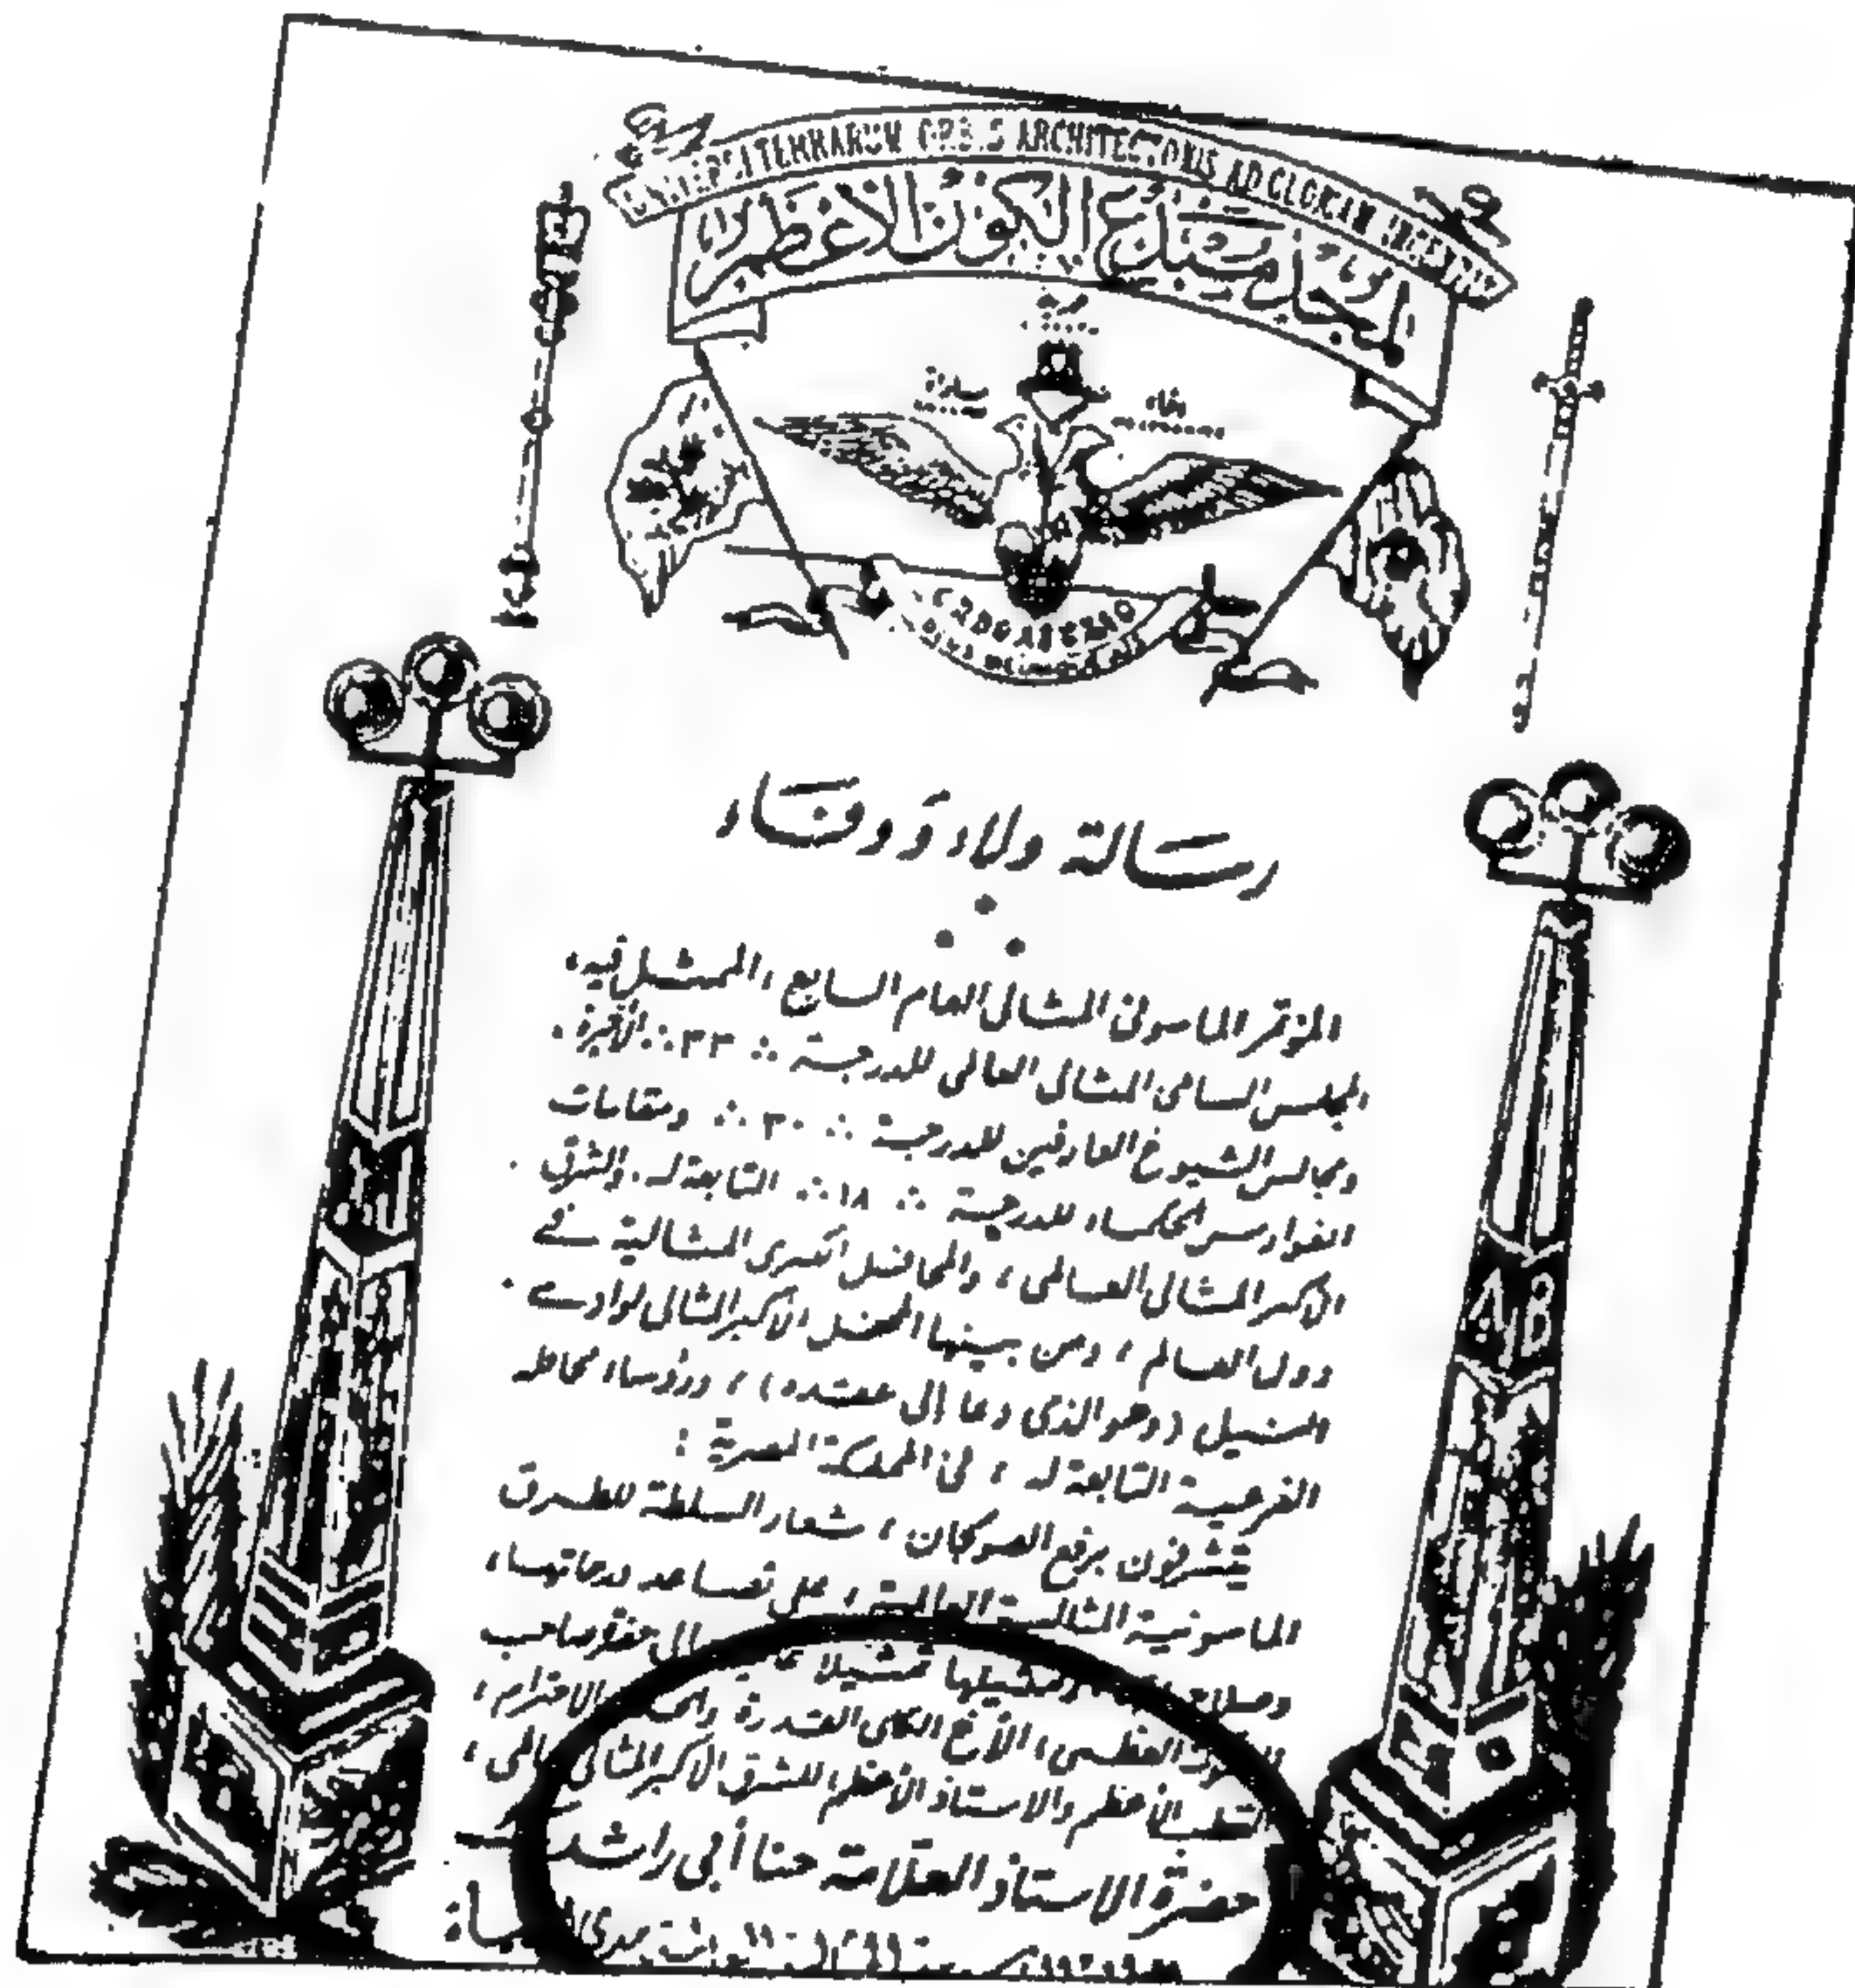 ARCHITECTONIS AD GLORIAM
لمجد مبدع الكون الأعظم
حرية
مساواة إخاء
ORDO AB CHAO
رسالة ولاء ووفاء
المؤتمر الماسوني المثالي العام السابع، الممثل فيه،
المجلس السامي المثالي العالمي للدرجة ∴ ٣٣ ∴ الأخيرة.
ومجالس الشيوخ العارفين للدرجة ∴ ٣٠ ∴ ومقامات
الفوارس الحكماء للدرجة ∴ ١٨ ∴ التابعة له. والشرق
الأكبر المثالي العالمي، والمحافل الكبرى المثالية في
دول العالم، ومن بينها المحفل الأكبر المثالي لوادي
النيل (وهو الذي دعا إلى عقده)، ورؤساء محافله
الفرعية التابعة له، في المملكة المصرية:
يتشرفون برفع الصولجان، شعار السلطة للطرق
الماسونية المثالية العالمية، على تصاعد درجاتها،
وتمثيلها تمثيلا صاحب
العظمى، الأخ الكلي القدرة والاحترام،
القطب الأعظم والاستاذ الأعظم للشرق الأكبر المثالي العالمي،
حضرة الاستاذ العلامة حنا أبي راشد